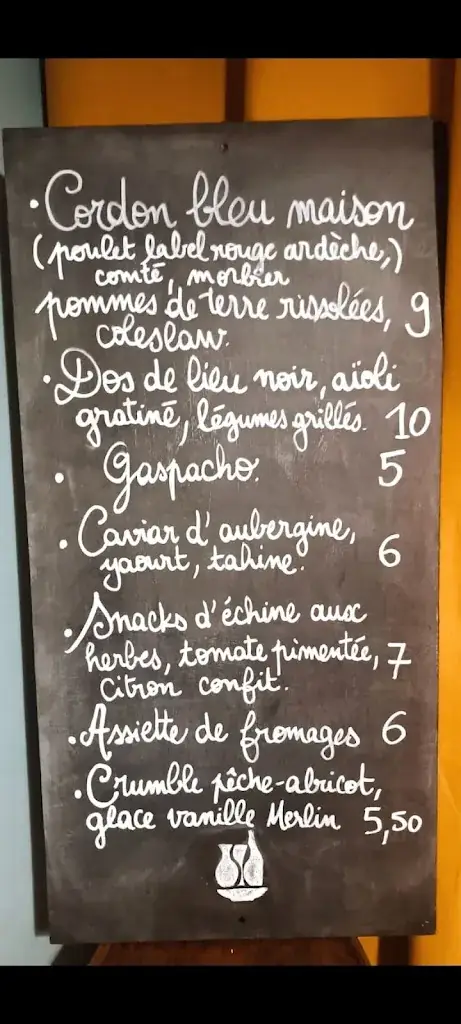 • Cordon bleu maison
(poulet label rouge ardèche,)
comté, morbier
pommes de terre rissolées, 9
coleslaw.
• Dos de lieu noir, aïoli
gratiné, légumes grillés. 10
• Gaspacho. 5
• Caviar d'aubergine,
yaourt, tahine. 6
• Snacks d'échine aux
herbes, tomate pimentée, 7
citron confit.
• Assiette de fromages 6
• Crumble pêche-abricot,
glace vanille Merlin 5,50